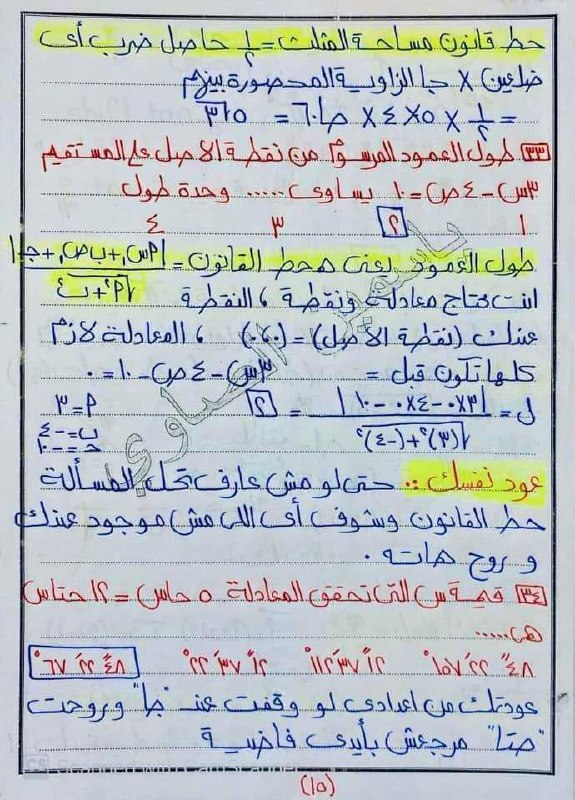 حط قانون مساحة المثلث = ١/٢ حاصل ضرب أى
ضلعين × جا الزاوية المحصورة بينهم
= ١/٢ × ٥ × ٤ × جا٦٠ = ٥√٣
٣٣ طول العمود المرسوم من نقطة الاصل على المستقيم
٣س - ٤ص = ١٠ يساوى ..... وحدة طول
١ ٢ ٣ ٤
طول العمود يعنى هحط القانون = |أس١ + ب ص١ + جـ| / √(أ² + ب²)
انت محتاج معادلة ونقطة ، النقطة
عندك (نقطة الاصل) = (٠،٠) ، المعادلة لازم
كلها تكون قبل = ٣س - ٤ص - ١٠ = ٠
ل = |٣×٠ - ٤×٠ - ١٠| / √((٣)² + (-٤)²) = ٢ أ = ٣
ب = -٤
جـ = -١٠
عود نفسك :. حتى لو مش عارف تحل المسألة
حط القانون وشوف أى اللى مش موجود عندك
و روح هاته .
٣٤ قيمة س التى تحقق المعادلة ٥ جاس = ١٢ جتاس
هى .....
٤٨ً ٢٢َ ١٥٧° ١٢ً ٣٧َ ١١٢° ١٢ً ٣٧َ ٢٢° ٤٨ً ٢٢َ ٦٧°
عودتك من اعدادى لو وقفت عند "جا" وروحت
"جتا" مرجعش بأيدى فاضية
CS Scanned with CamScanner
(١٥)